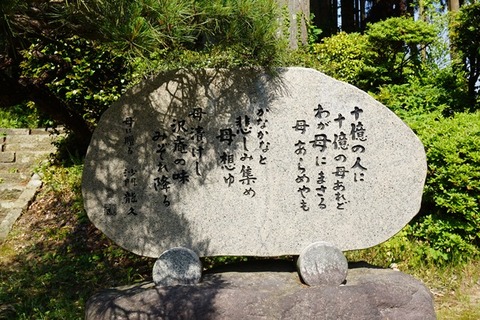 十億の人に
十億の母あれど
わが母にまさる
母あらめやも
かなかなと
悲しみ集め
母想ゆ
母漬けし
沢庵の味
みぞれ降る
母に贈る